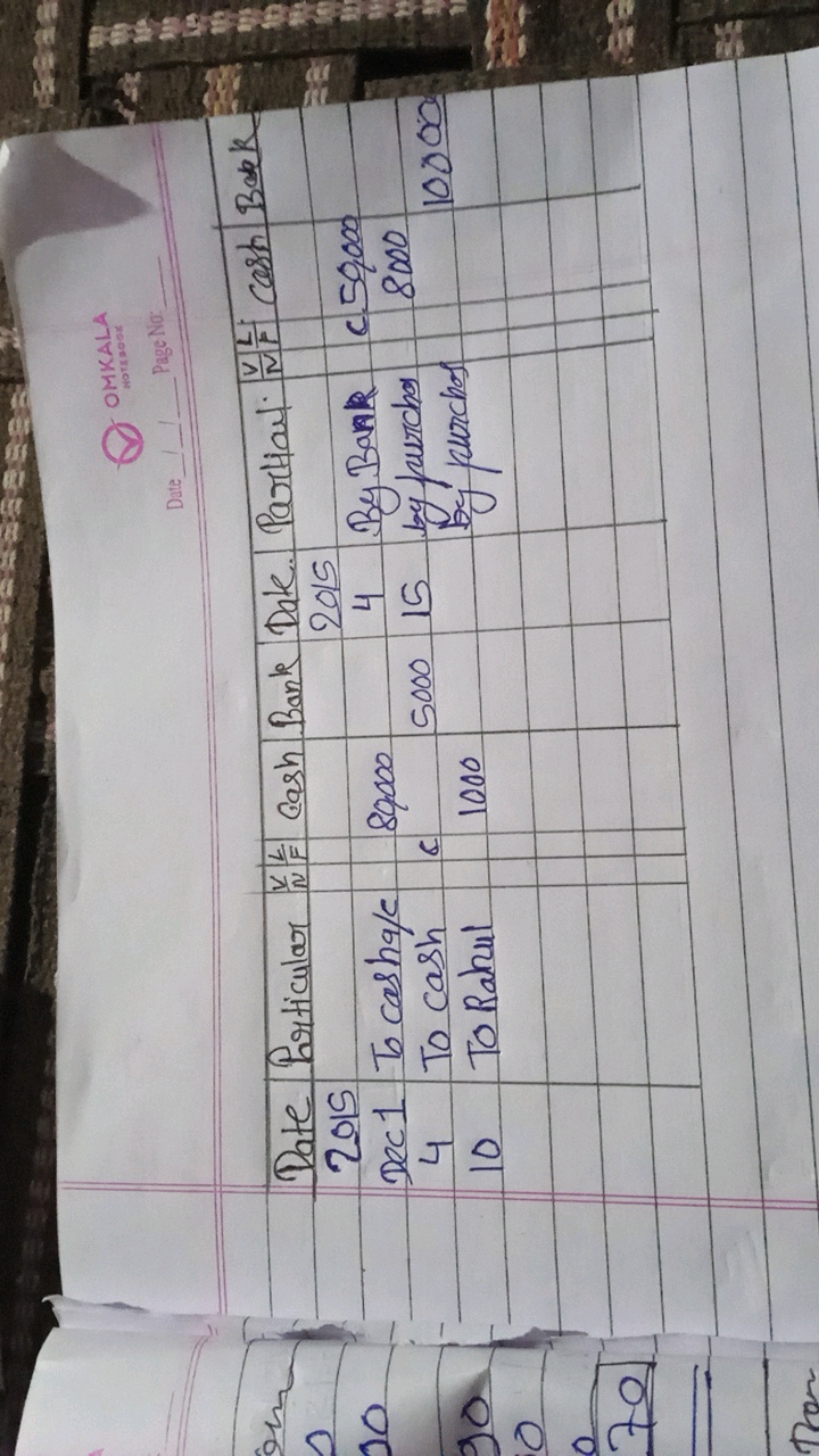 OMKALA
NOTEBOOK
Date __/__/__ Page No: ____
Date Particular V/N L/F Cash Bank Date Particul. V/N L/F Cash Bank
2015 2015
Dec 1 To cash a/c 80,000 4 By Bank C 50,000
4 To cash C 5000 15 by purchas 8000
10 To Rahul 1000 by purchas 10000
70